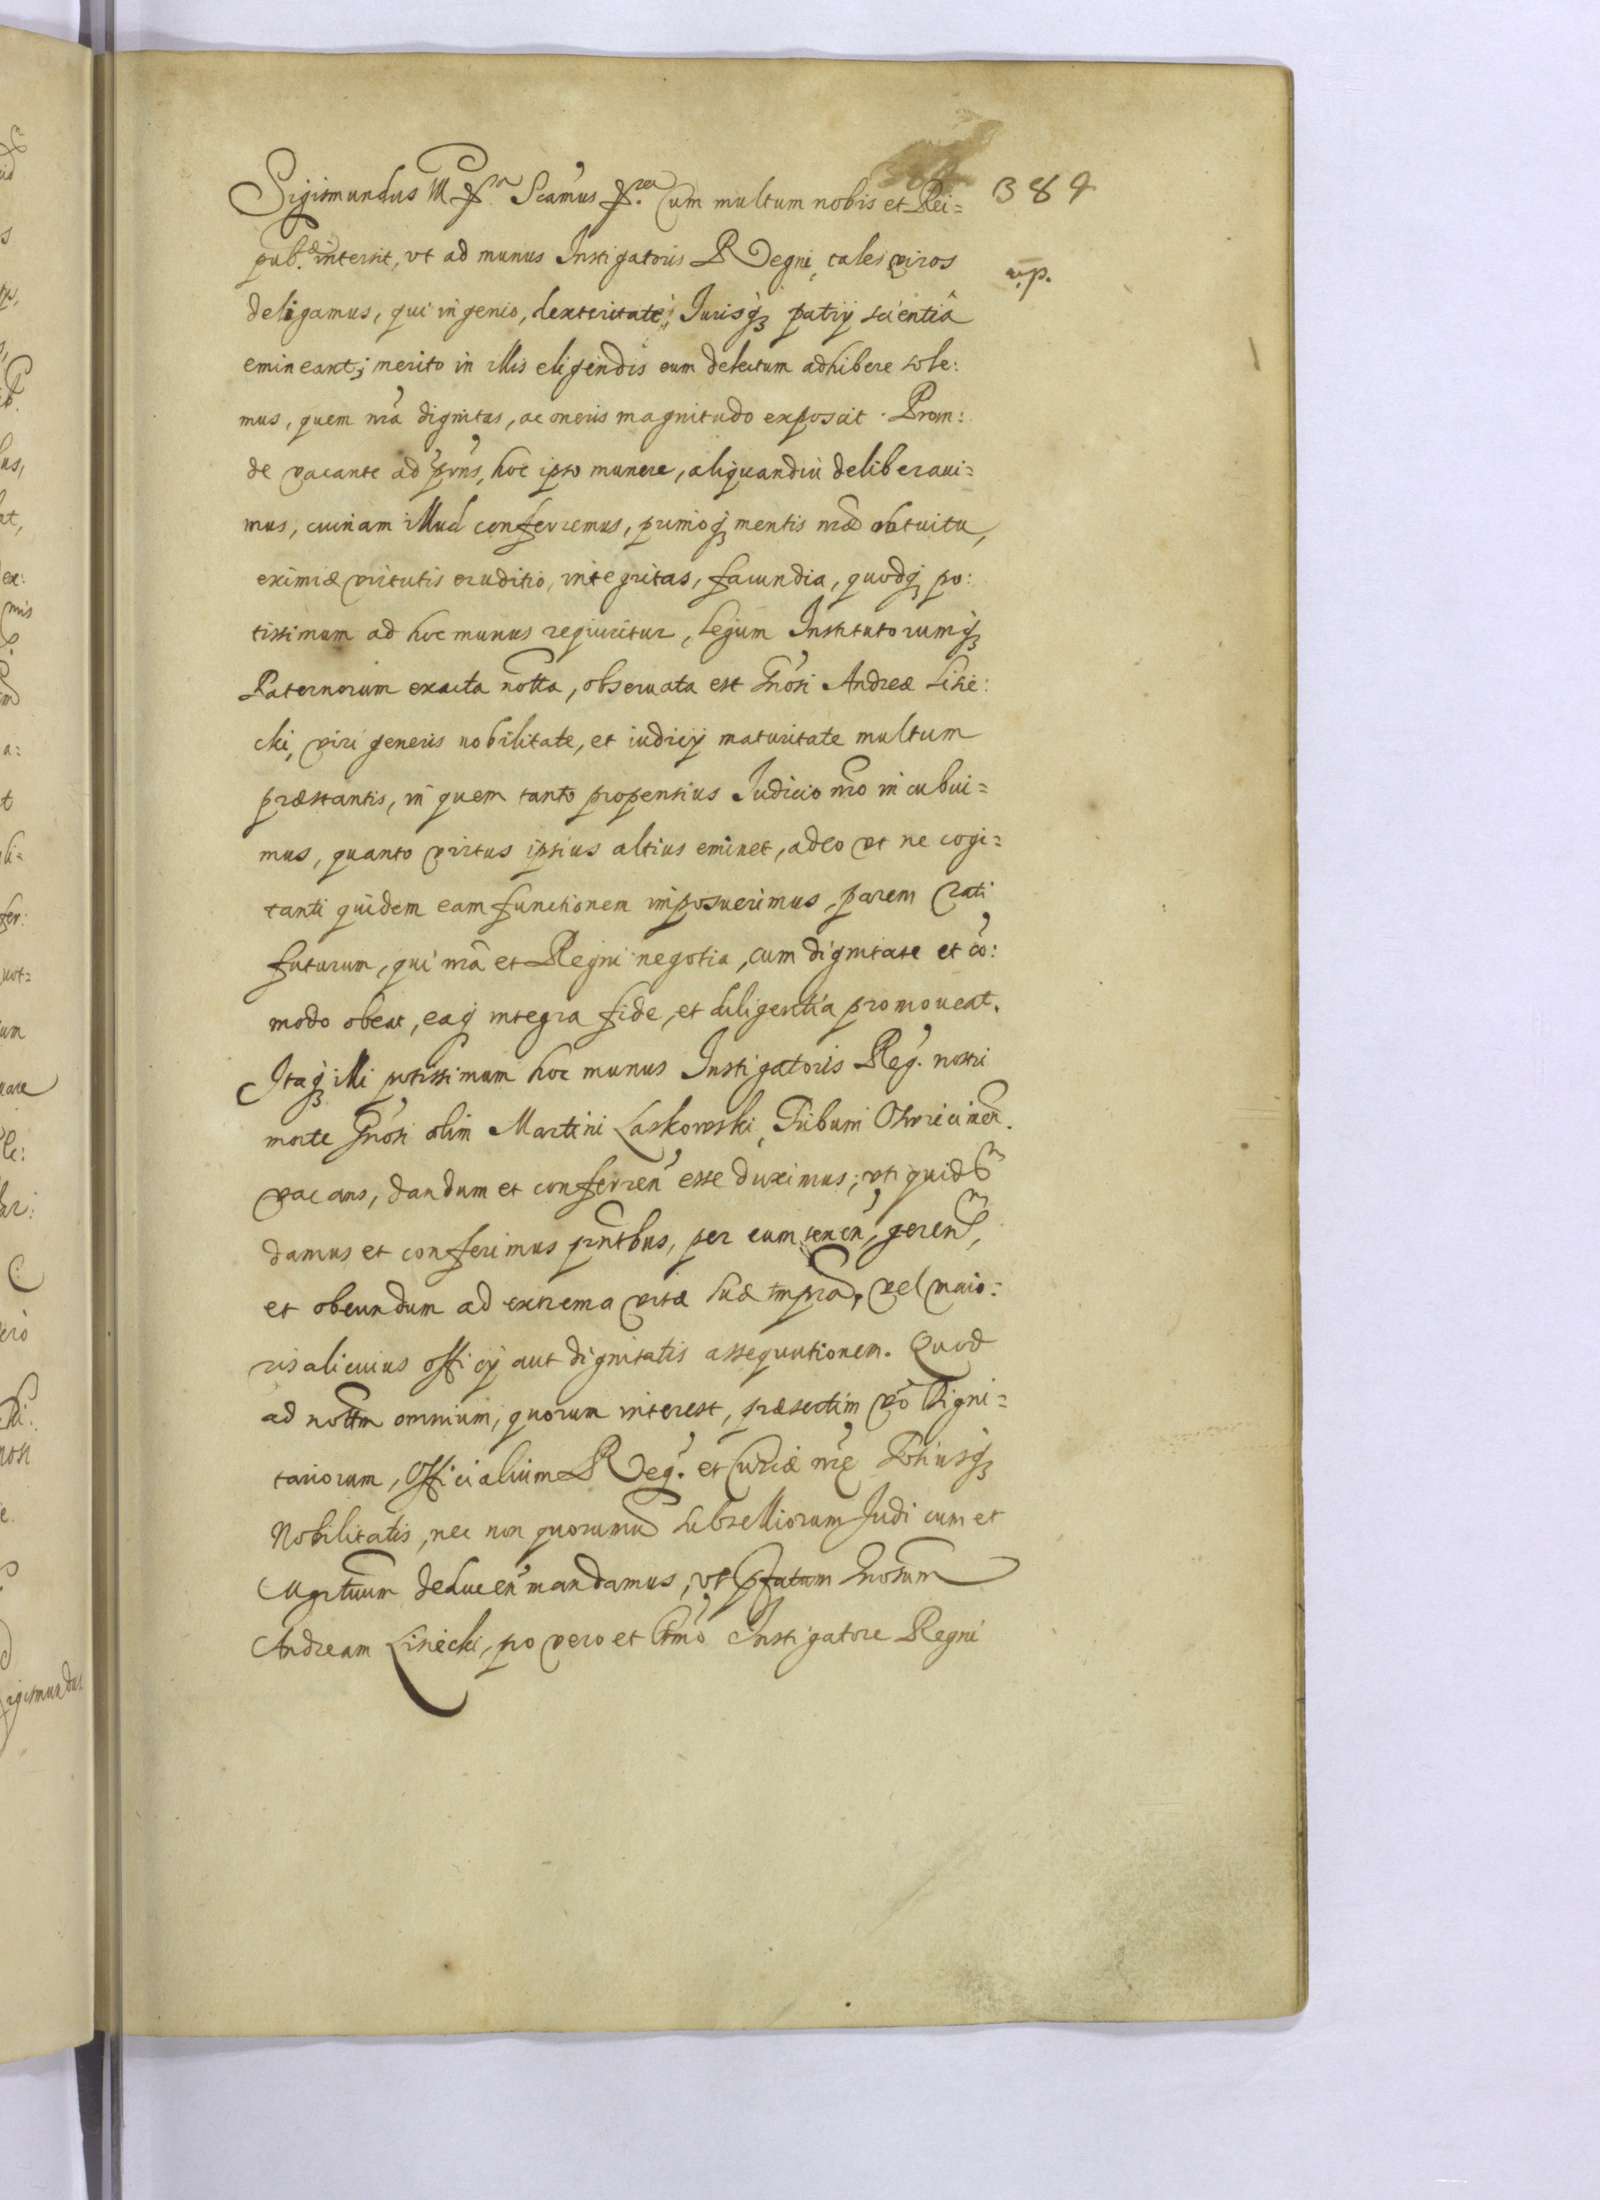 389
Sigismundus III &ra Scamus &rea Cum multum nobis et Rei=
pub. intersit, vt ad munus Instigatoris Regni, tales viros
v.p.
deligamus, qui ingenio, dexteritate, Jurisq patrij scientiâ
emineant; merito in illis eligendis eum delectum adhibere sole:
mus, quem nra dignitas, ac oneris magnitudo exposcit. Proin:
de vacante ad pns, hoc ipso munere, aliquandiu deliberaui=
mus, cuinam illud conferremus, primoq mentis nræ obtuitu,
eximiæ virtutis eruditio, integritas, facundia, quodq po:
tissimum ad hoc munus requiritur, Legum Institutorumq
Paternorum exacta notta, obseruata est Gnosi Andreæ Lisie:
cki, viri generis nobilitate, et iudicij maturitate multum
præstantis, in quem tanto propensius Judicio nro incubui=
mus, quanto virtus ipsius altius eminet, adeo vt ne cogi=
tanti quidem eam functionem imposuerimus, parem rati
futurum, qui nra et Regni negotia, cum dignitate et co:
modo obeat, eaq integra fide, et diligentia promoueat.
Itaq illi potissimum hoc munus Instigatoris Reg. nostri
morte Gnosi olim Martini Laskowski, Tribuni Owricinen.
vacans, dandum et conferren esse duximus; vti quidem
damus et conferimus pntbus, per eum tenen, geren,
et obeundum ad extrema vitæ suæ tmpra, vel maio:
ris alicuius officij aut dignitatis assequutionem. Quod
ad nottm omnium, quorum interest, præsertim vo Digni=
tariorum, Officialium Reg. et Curiæ nræ Totiusq
Nobilitatis, nec non quorumu subselliorum Judicum et
Mgrtuum deducen mandamus, vt pfatum Gnosum
Andream Lisiecki, pro vero et ltmo Instigatore Regni